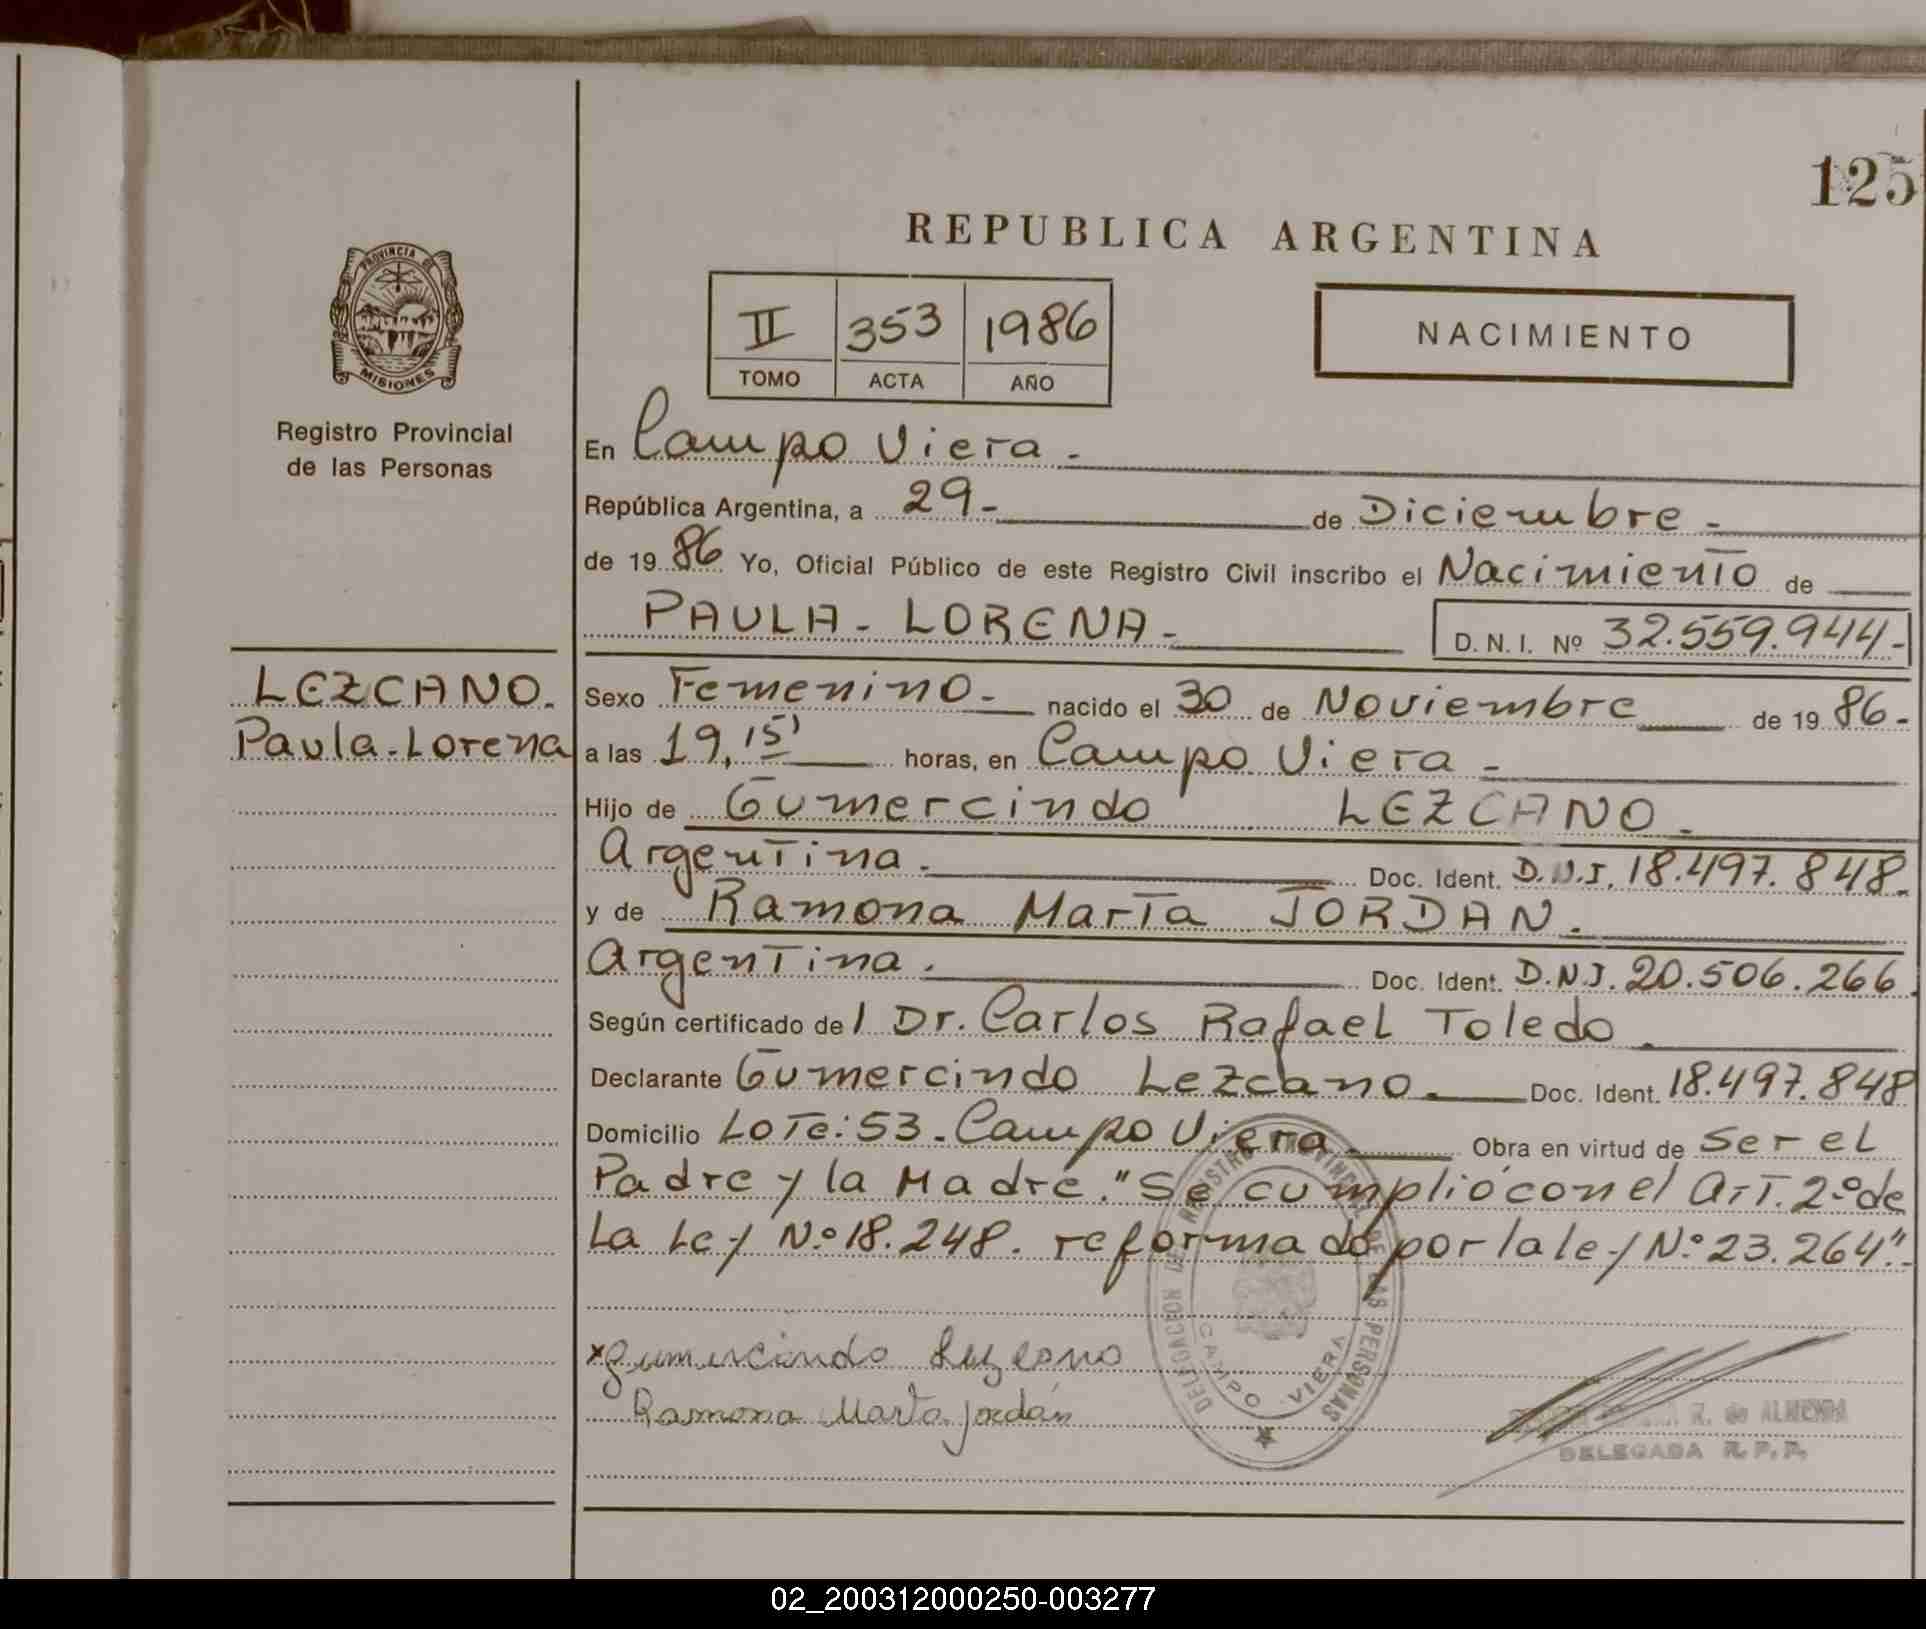 125
REPUBLICA ARGENTINA
PROVINCIA DE
MISIONES
II 353 1986
TOMO ACTA AÑO
NACIMIENTO
Registro Provincial
de las Personas
En Campo Viera.
República Argentina, a 29- de Diciembre-
de 19 86 Yo, Oficial Público de este Registro Civil inscribo el Nacimiento de
PAULA - LORENA - D. N. I. Nº 32.559.944-
LEZCANO.
Paula-Lorena
Sexo Femenino- nacido el 30 de Noviembre de 19 86-
a las 19,15' horas, en Campo Viera -
Hijo de Gumercindo LEZCANO.
Argentina. Doc. Ident. D.N.I. 18.497.848.
y de Ramona Marta JORDAN.
Argentina. Doc. Ident. D.N.I. 20.506.266
Según certificado del Dr. Carlos Rafael Toledo.
Declarante Gumercindo Lezcano. Doc. Ident. 18.497.848
Domicilio Lote: 53. Campo Viera Obra en virtud de Ser el
Padre y la Madre. "Se cumplió con el Art. 2º de
La Ley Nº 18.248. reformado por la ley Nº 23.264".
DELEGACION DE REGISTRO PROVINCIAL DE LAS PERSONAS
CAMPO VIERA
x Gumercindo Lezcano
Ramona Marta Jordán
R. de ALMEIDA
DELEGADA R. P. P.
02_200312000250-003277